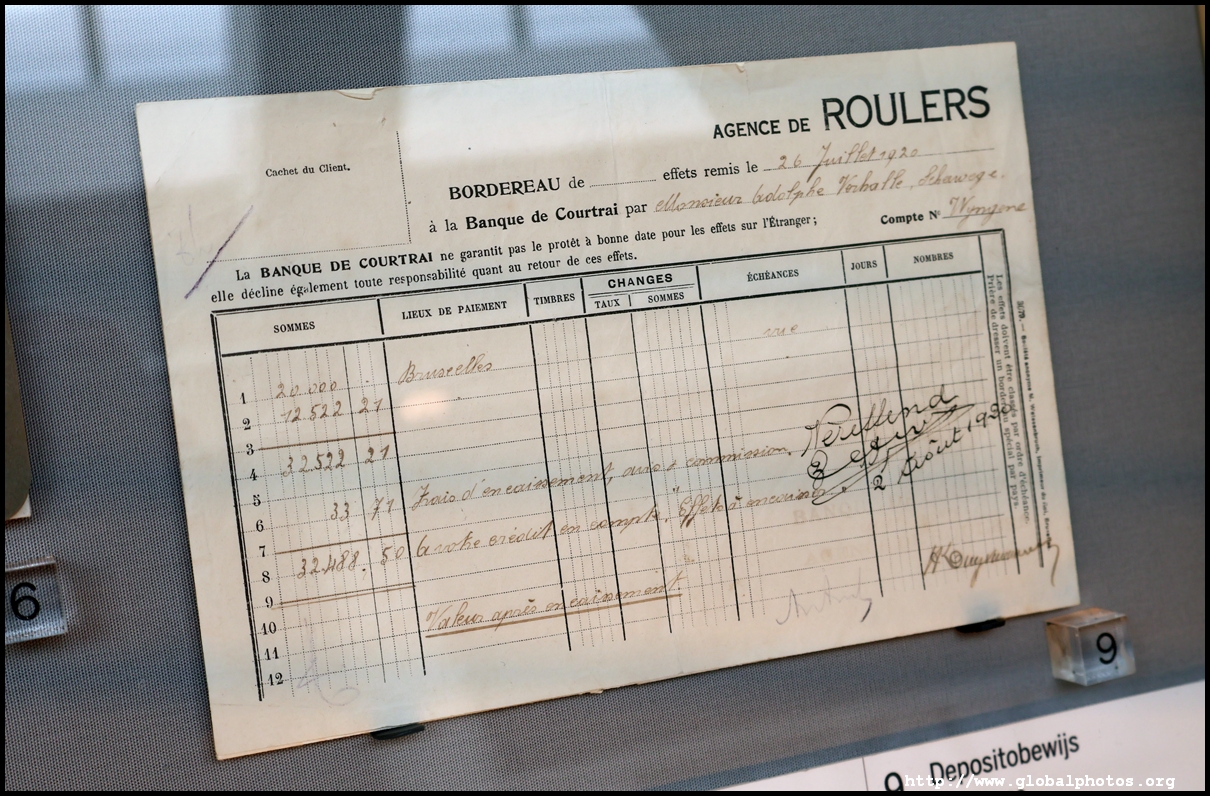 AGENCE DE ROULERS
Cachet du Client.
BORDEREAU de effets remis le 26 Juillet 1920
à la Banque de Courtrai par Monsieur Adolphe Verhalle
Compte N° Wyngene
La BANQUE DE COURTRAI ne garantit pas le protêt à bonne date pour les effets sur l'Étranger ;
elle décline également toute responsabilité quant au retour de ces effets.
SOMMES LIEUX DE PAIEMENT TIMBRES CHANGES ÉCHÉANCES JOURS NOMBRES
TAUX SOMMES
1 20.000 Bruxelles vue
2 12.522 21
3
4 32522 21
5
6 33 71 Frais d'encaissement, avis & commission.
7
8 32.488. 50 à votre crédit en compte. Effets à encaisser
9
10 Valeur après encaissement.
11
12
2 Août 1920
Les effets doivent être classés par ordre d'échéance.
Prière de dresser un bordereau spécial par pays.
6
9
9 Depositobewijs
http://www.globalphotos.org